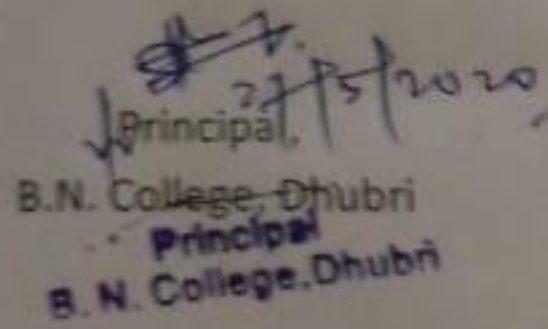 27/5/2020
Principal,
B.N. College, Dhubri
Principal
B. N. College, Dhubri